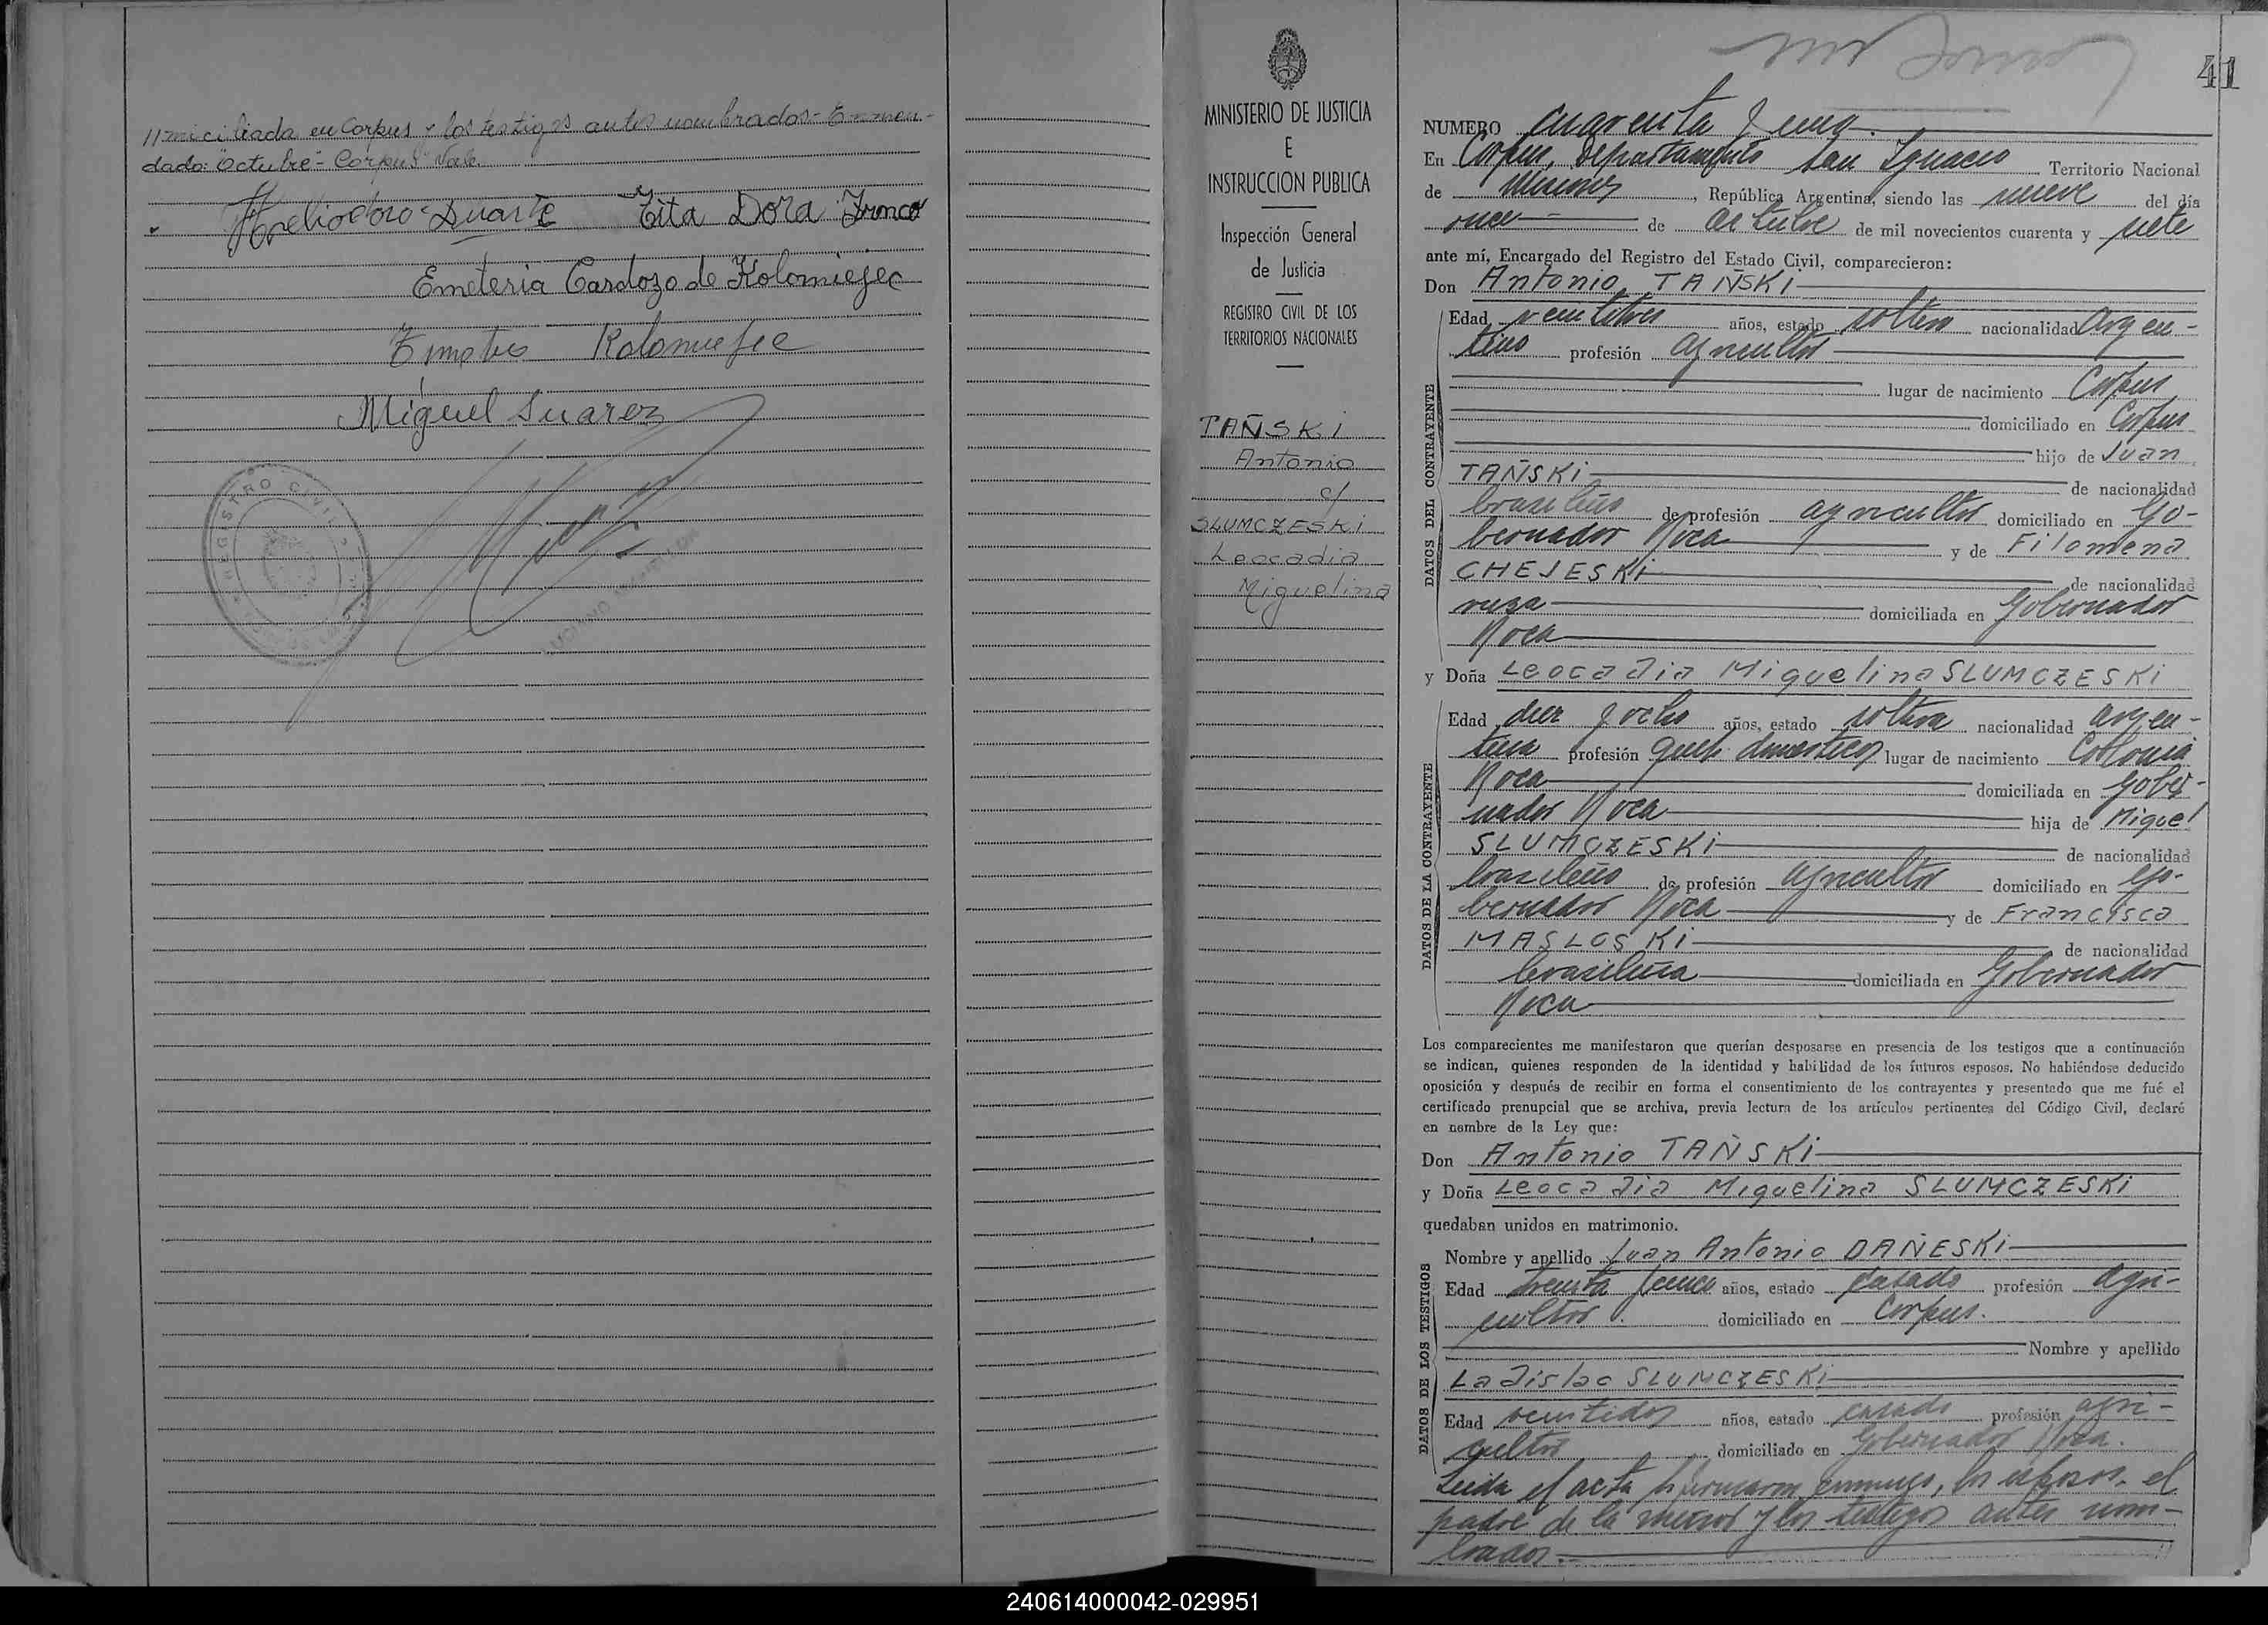 //miciliada en Corpus y los testigos antes nombrados - Enmen-
dado: "Octubre" - Corpus" Vale.
Heliodoro Duarte Tita Dora Franco
Emeteria Cardozo de Kolomiejec
Kolomiejec
Miguel Suarez
REGISTRO CIVIL
MINISTERIO DE JUSTICIA
E
INSTRUCCION PUBLICA
Inspección General
de Justicia
REGISTRO CIVIL DE LOS
TERRITORIOS NACIONALES
TAÑSKi
Antonio
c/
SLUMCZESKi
Leocadia
Miguelina
41
NUMERO cuarenta y uno.
En Corpus, Departamento San Ignacio Territorio Nacional
de Misiones, República Argentina, siendo las nueve del día
once de octubre de mil novecientos cuarenta y siete
ante mí, Encargado del Registro del Estado Civil, comparecieron:
Don Antonio TAÑSKi
DATOS DEL CONTRAYENTE
Edad veintitres años, estado soltero nacionalidad Argen-
tino profesión agricultor
lugar de nacimiento Corpus
domiciliado en Corpus
hijo de Juan
TAÑSKi de nacionalidad
brasileño de profesión agricultor domiciliado en Go-
bernador Roca y de Filomena
CHEJESKi de nacionalidad
rusa domiciliada en Gobernador
Roca
y Doña Leocadia Miguelina SLUMCZESKi
DATOS DE LA CONTRAYENTE
Edad diez y ocho años, estado soltera nacionalidad argen-
tina profesión queh. domesticos lugar de nacimiento Colonia
Roca domiciliada en Gober-
nador Roca hija de Miguel
SLUMCZESKi de nacionalidad
brasileño de profesión agricultor domiciliado en Go-
bernador Roca y de Francisca
MASLOSKi de nacionalidad
brasileña domiciliada en Gobernador
Roca
Los comparecientes me manifestaron que querían desposarse en presencia de los testigos que a continuación
se indican, quienes responden de la identidad y habilidad de los futuros esposos. No habiéndose deducido
oposición y después de recibir en forma el consentimiento de los contrayentes y presentado que me fué el
certificado prenupcial que se archiva, previa lectura de los artículos pertinentes del Código Civil, declaré
en nombre de la Ley que:
Don Antonio TAÑSKi
y Doña Leocadia Miguelina SLUMCZESKi
quedaban unidos en matrimonio.
DATOS DE LOS TESTIGOS
Nombre y apellido Juan Antonio DAÑESKi
Edad treinta y cinco años, estado casado profesión agri-
cultor domiciliado en Corpus.
Nombre y apellido
Ladislao SLUMCZESKi
Edad veintidos años, estado casado profesión agri-
cultor domiciliado en Gobernador Roca.
Leida el acta la firmaron conmigo, los esposos, el
padre de la menor y los testigos antes nom-
brados.-
240614000042-029951